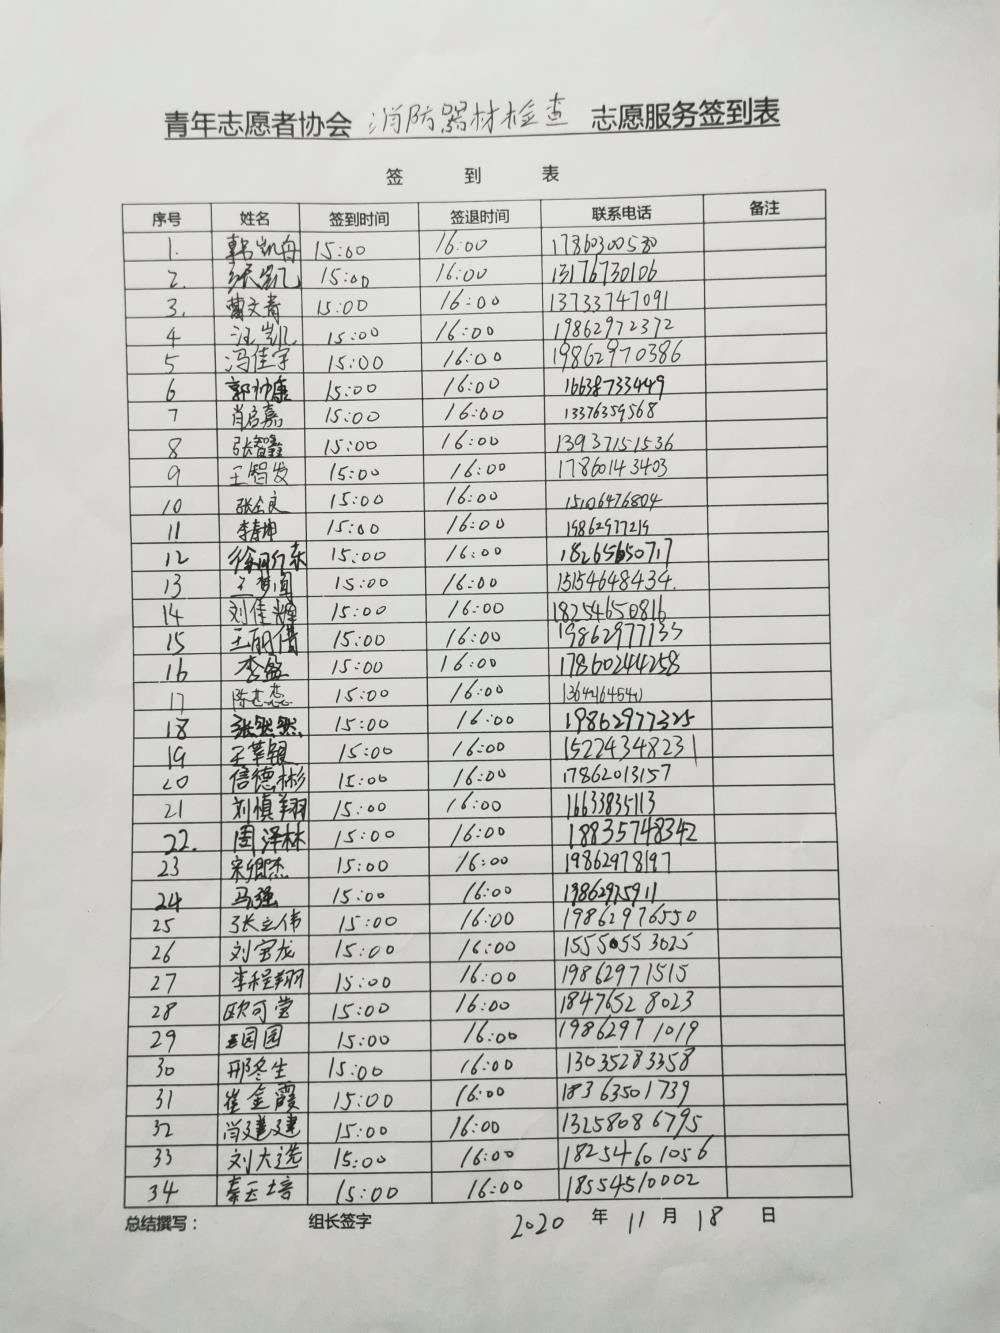 青年志愿者协会 消防器材检查 志愿服务签到表
签 到 表
序号 姓名 签到时间 签退时间 联系电话 备注
1. 韩凯舟 15:00 16:00 17860300580
2. 张凯 15:00 16:00 13176730106
3. 曹文青 15:00 16:00 13733747091
4 汪凯 15:00 16:00 19862972372
5 冯佳宇 15:00 16:00 19862970386
6 郭帅康 15:00 16:00 16638733449
7 肖启嘉 15:00 16:00 13376359568
8 张智鑫 15:00 16:00 13937151536
9 王智发 15:00 16:00 17860143403
10 15:00 16:00 15106476804
11 李春坤 15:00 16:00 19862977219
12 15:00 16:00 18265650717
13 15:00 16:00 15154648434.
14 刘佳辉 15:00 16:00 18254650816
15 王丽倩 15:00 16:00 19862977133
16 李盈 15:00 16:00 17860244258
17 15:00 16:00
18 张然然 15:00 16:00 19862977325
19 15:00 16:00 15224348231
20 信德彬 15:00 16:00 17862013157
21 刘慎翔 15:00 16:00 16633835113
22. 周泽林 15:00 16:00 18835748342
23 宋卿杰 15:00 16:00 19862978197
24 马强 15:00 16:00 19862975911
25 张立伟 15:00 16:00 19862976550
26 刘宝龙 15:00 16:00 15550553025
27 李程翔 15:00 16:00 19862971515
28 欧可莹 15:00 16:00 18476528023
29 王园园 15:00 16:00 19862971019
30 邢冬生 15:00 16:00 13035283358
31 崔金霞 15:00 16:00 18363501739
32 肖建建 15:00 16:00 13258086795
33 刘大选 15:00 16:00 18254601056
34 秦玉培 15:00 16:00 18554510002
总结撰写: 组长签字 2020 年 11 月 18 日